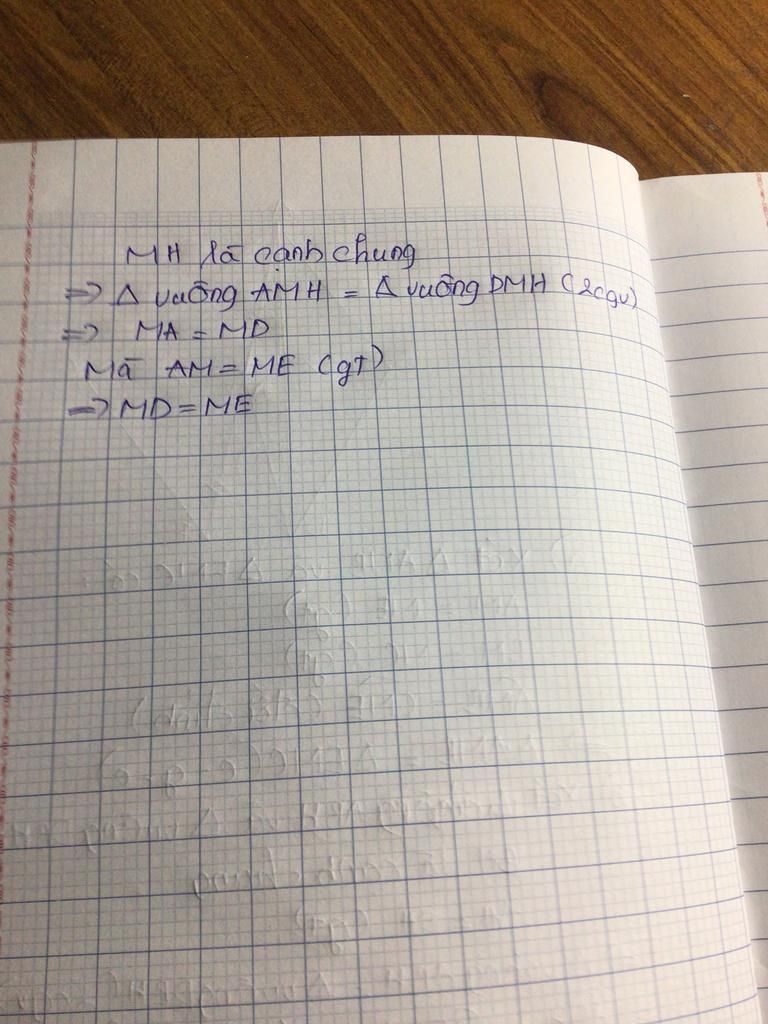 MH là cạnh chung
=> Δ vuông AMH = Δ vuông DMH (2cgv)
=> MA = MD
Mà AM = ME (gt)
=> MD = ME